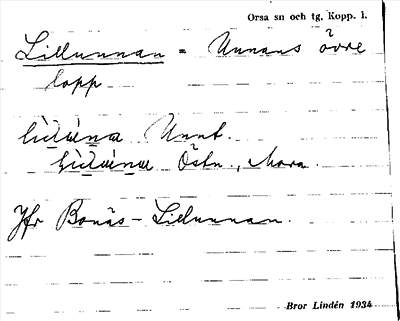 Orsa sn och tg, Kopp. l.
Lillunnan = Unnans övre
lopp
Unnt.
Östn., Mora.
Jfr Bonäs-Lillunnan.
Bror Lindén 1934